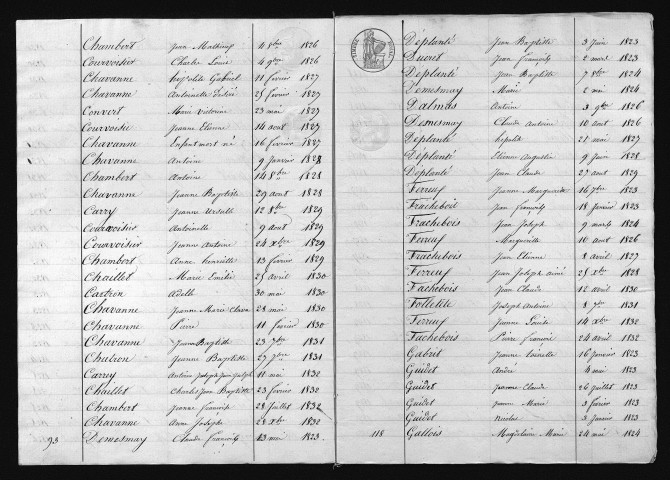 Chambert Jean Mathieu 4 8bre 1826
Courvoisier Charles Louis 4 9bre 1826
Chavanne hypolite Gabriel 11 fevrier 1827
Chavanne Antoinette Désirée 25 fevrier 1827
Convert Marie victorine 23 mai 1827
Courvoisier Jeanne Etienne 14 aout 1827
Chavanne Enfant mort né 16 fevrier 1827
Chavanne Antoine 9 Janvier 1828
Chambert Antoine 14 8bre 1828
Chavanne Jeanne Baptiste 29 aout 1828
Carry Jeanne Ursule 12 8bre 1829
Courvoisier Antoinette 9 aout 1829
Courvoisier Jeanne Antoine 24 xbre 1829
Chambert Anne henriette 13 fevrier 1829
Chaillet Marie Emilie 25 avril 1830
Cartron Adelle 30 mai 1830
Chavanne Jeanne Marie 28 mai 1830
Chavanne Pierre 11 fevrier 1830
Chavanne Jeanne Baptiste 23 7bre 1831
Chatron Jeanne Baptiste 27 7bre 1831
Carrey Antoine Joseph Jean 11 mai 1832
Chaillet Charles Jean Baptiste 23 fevrier 1832
Chambert Jeanne françoise 28 Juillet 1832
Chavanne Anne Josephe 28 xbre 1832
93 Demesmay Claude françois 13 mai 1823
Déplanté Jean Baptiste 3 Juin 1823
Ducret Jean françois 2 mars 1823
Deplanté Jean Baptiste 7 8bre 1824
Demesmay Marie 2 mai 1824
Dalmas Antoine 3 9bre 1826
Demesmay Claude Antoine 10 aout 1826
Déplanté hipolite 21 mai 1827
Déplanté Etienne Augustin 9 Juin 1828
Déplanté Jean Claude 27 aout 1829
Ferreuf Jeanne Marguerite 16 7bre 1823
Frachebois Jean françois 18 fevrier 1823
Frachebois Jean Joseph 9 mars 1824
Ferreuf Marguerite 10 aout 1826
Frachebois Jean Etienne 8 avril 1827
Ferreuf Jean Joseph aimé 25 xbre 1828
Fachebois Jean Claude 12 avril 1830
Folletête Joseph Antoine 8 7bre 1831
Ferreuf Jeanne Louise 14 xbre 1832
Fachebois Pierre françois 24 avril 1832
Gabrit Jeanne 16 janvier 1823
Guidet André 4 mai 1823
Guidet Jeanne Claude 26 juillet 1823
Guidet Jeanne Marie 3 fevrier 1823
Guidet Nicolas 3 Janvier 1823
118 Gallois Magdelaine Marie 24 mai 1824